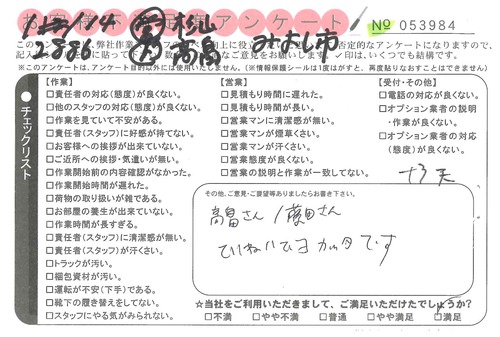 お客様不満足アンケート
No 053984
みよし市
※このアンケートは、アンケート目的以外には使用いたしません。(※情報保護シールは1度はがすと、再度貼りなおすことはできません)
チェックリスト
【作業】
□責任者の対応(態度)が良くない。
□他のスタッフの対応(態度)が良くない。
□作業を見ていて不安がある。
□責任者(スタッフ)に好感が持てない。
□お客様への挨拶が出来ていない。
□ご近所への挨拶・気遣いが無い。
□作業開始前の内容確認がなかった。
□作業開始時間が遅れた。
□荷物の取り扱いが雑である。
□お部屋の養生が出来ていない。
□作業時間が長すぎる。
□責任者(スタッフ)に清潔感が無い。
□責任者(スタッフ)が汗くさい。
□トラックが汚い。
□梱包資材が汚い。
□運転が不安(下手)である。
□靴下の履き替えをしてない。
□スタッフにやる気がみられない。
【営業】
□見積もり時間に遅れた。
□見積もり時間が長い。
□営業マンに清潔感が無い。
□営業マンが煙草くさい。
□営業マンが汗くさい。
□営業態度が良くない。
□営業の説明と作業が一致してない。
【受付・その他】
□電話の対応が良くない。
□オプション業者の説明・作業が良くない。
□オプション業者の対応(態度)が良くない。
その他、ご意見・ご要望等ありましたらお書き下さい。
高畠さん/藤田さん
☆当社をご利用いただきまして、ご満足いただけたでしょうか?
□不満 □やや不満 □普通 □やや満足 □満足